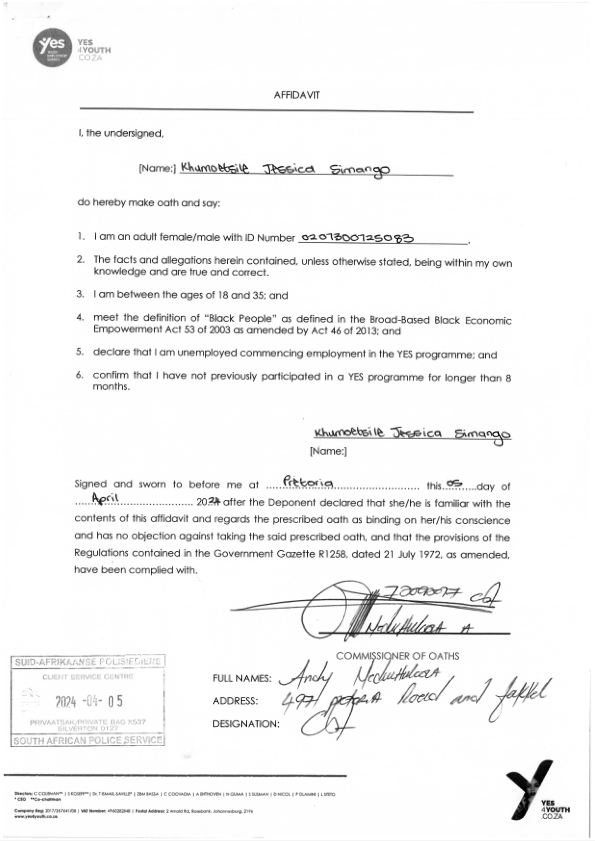 yes
YES
4YOUTH
.CO.ZA
AFFIDAVIT
I, the undersigned,
[Name:] Khumoetsile Jessica Simango
do hereby make oath and say:
1. I am an adult female/male with ID Number 0207300725083.
2. The facts and allegations herein contained, unless otherwise stated, being within my own
knowledge and are true and correct.
3. I am between the ages of 18 and 35; and
4. meet the definition of “Black People” as defined in the Broad-Based Black Economic
Empowerment Act 53 of 2003 as amended by Act 46 of 2013; and
5. declare that I am unemployed commencing employment in the YES programme; and
6. confirm that I have not previously participated in a YES programme for longer than 8
months.
Khumoetsile Jessica Simango
[Name:]
Signed and sworn to before me at Pretoria this 05 day of
April 2024 after the Deponent declared that she/he is familiar with the
contents of this affidavit and regards the prescribed oath as binding on her/his conscience
and has no objection against taking the said prescribed oath, and that the provisions of the
Regulations contained in the Government Gazette R1258, dated 21 July 1972, as amended,
have been complied with.
COMMISSIONER OF OATHS
FULL NAMES: Andy
ADDRESS: Road and
DESIGNATION:
SUID-AFRIKAANSE POLISIEDIENS
CLIENT SERVICE CENTRE
2024 -04- 05
PRIVAATSAK/PRIVATE BAG X537
SILVERTON 0127
SOUTH AFRICAN POLICE SERVICE
* CEO **Co-chairman
Company Reg: 2017/267641/08 | VAT Number: 4960282848 | Postal Address: 2 Arnold Rd, Rosebank, Johannesburg, 2196
www.yes4youth.co.za
YES
4YOUTH
.CO.ZA